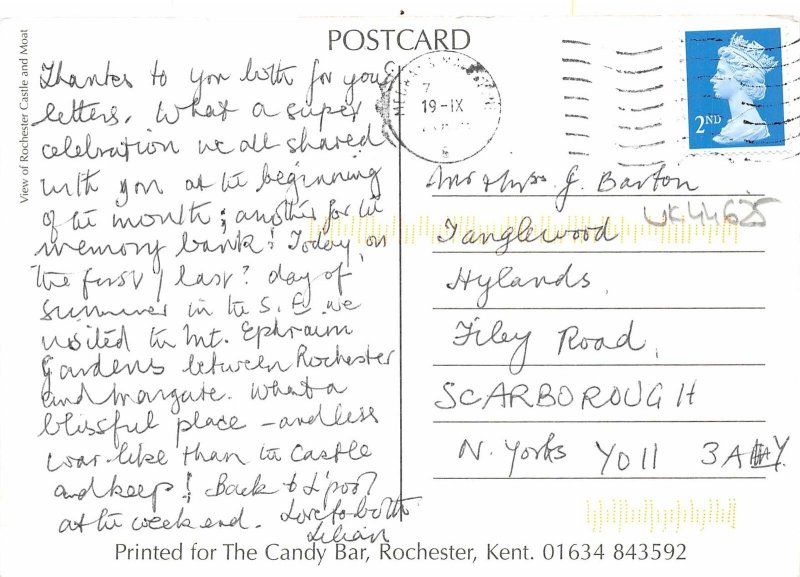 POSTCARD
View of Rochester Castle and Moat
Thanks to you both for your
letters. What a super
celebration we all shared
with you at the beginning
of the month; another for the
memory bank! Today, on
the first / last? day of
summer in the S.E. we
visited the Mt. Ephraim
Gardens between Rochester
and Margate. What a
blissful place – and less
war-like than the Castle
and keep! Back to L'pool
at the weekend. Love to both
Lilian
7
19-IX
2ND
Mr & Mrs. J. Barton
UK44625
Tanglewood
Hylands,
Filey Road,
SCARBOROUGH
N. Yorks YO11 3AY.
Printed for The Candy Bar, Rochester, Kent. 01634 843592